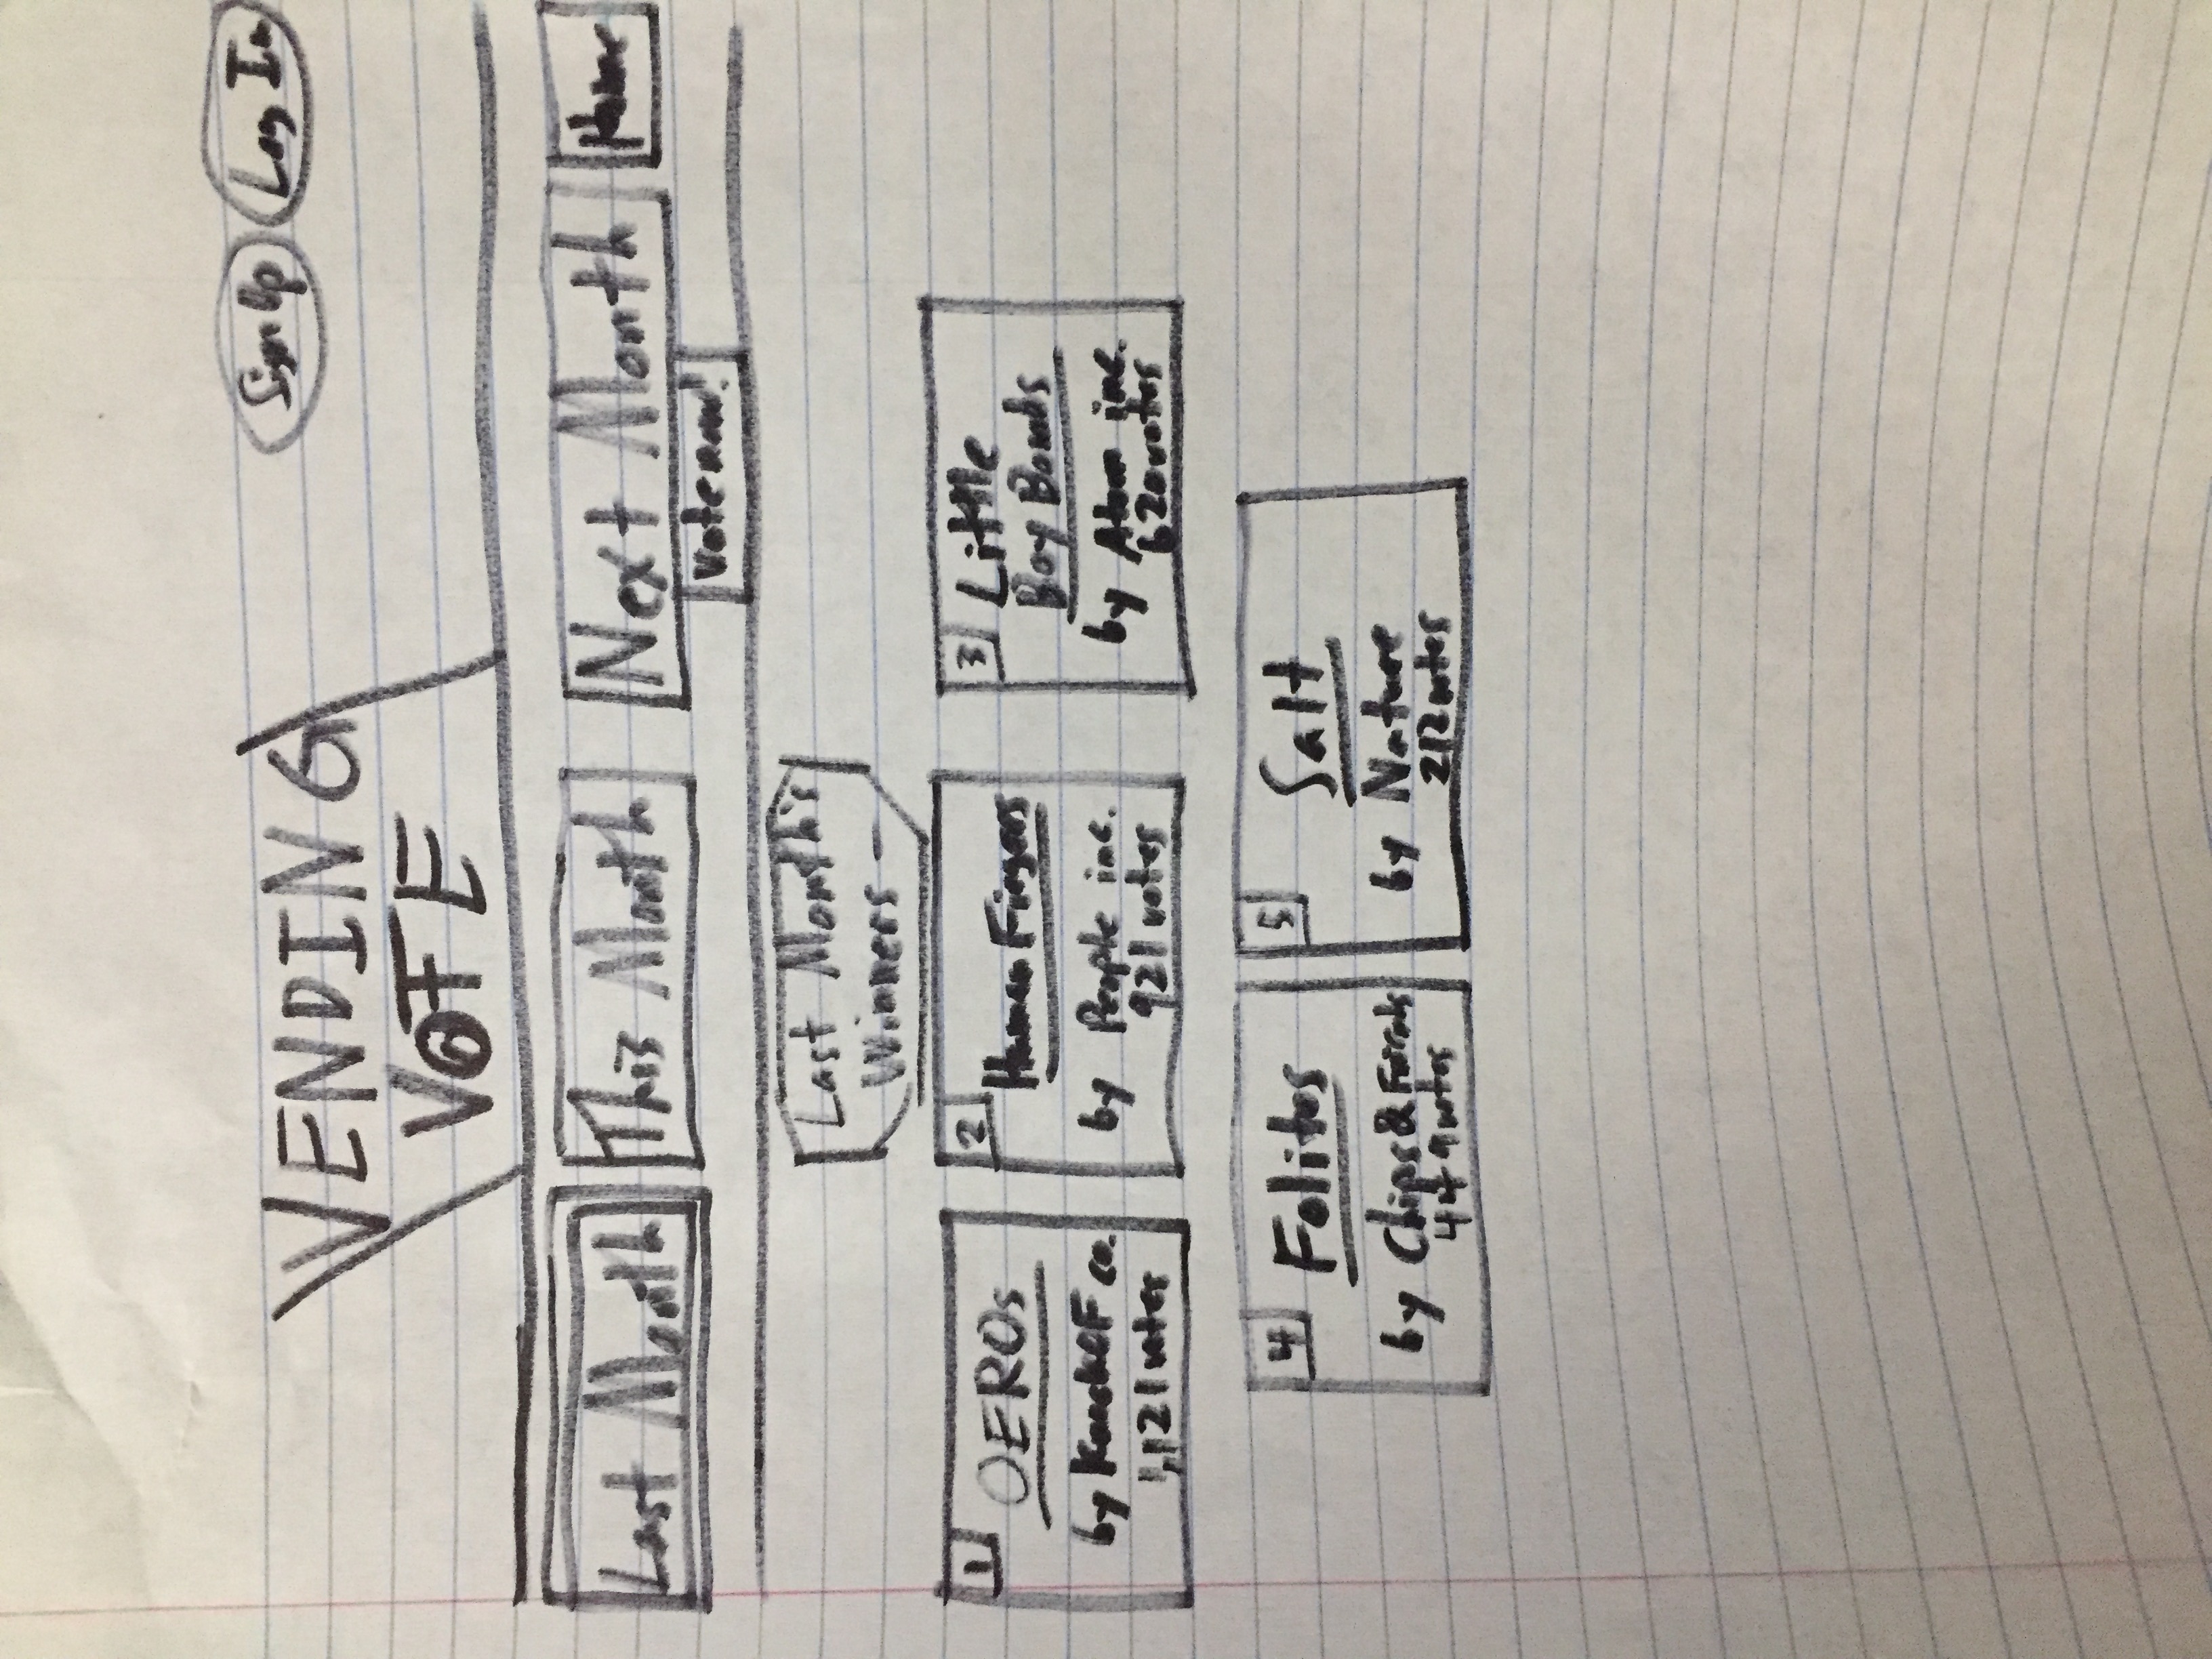 Sign Up Log In
VENDING
VOTE
Last Month This Month Next Month Home
Vote now!
Last Month's
Winners -
1 OEROs
by co.
1,121 votes
2 Human Fingers
by People inc.
921 votes
3 Little
Boy Bombs
by Atom inc.
620 votes
4 Folitos
by Chips & Friends
449 votes
5 Salt
by Nature
212 votes